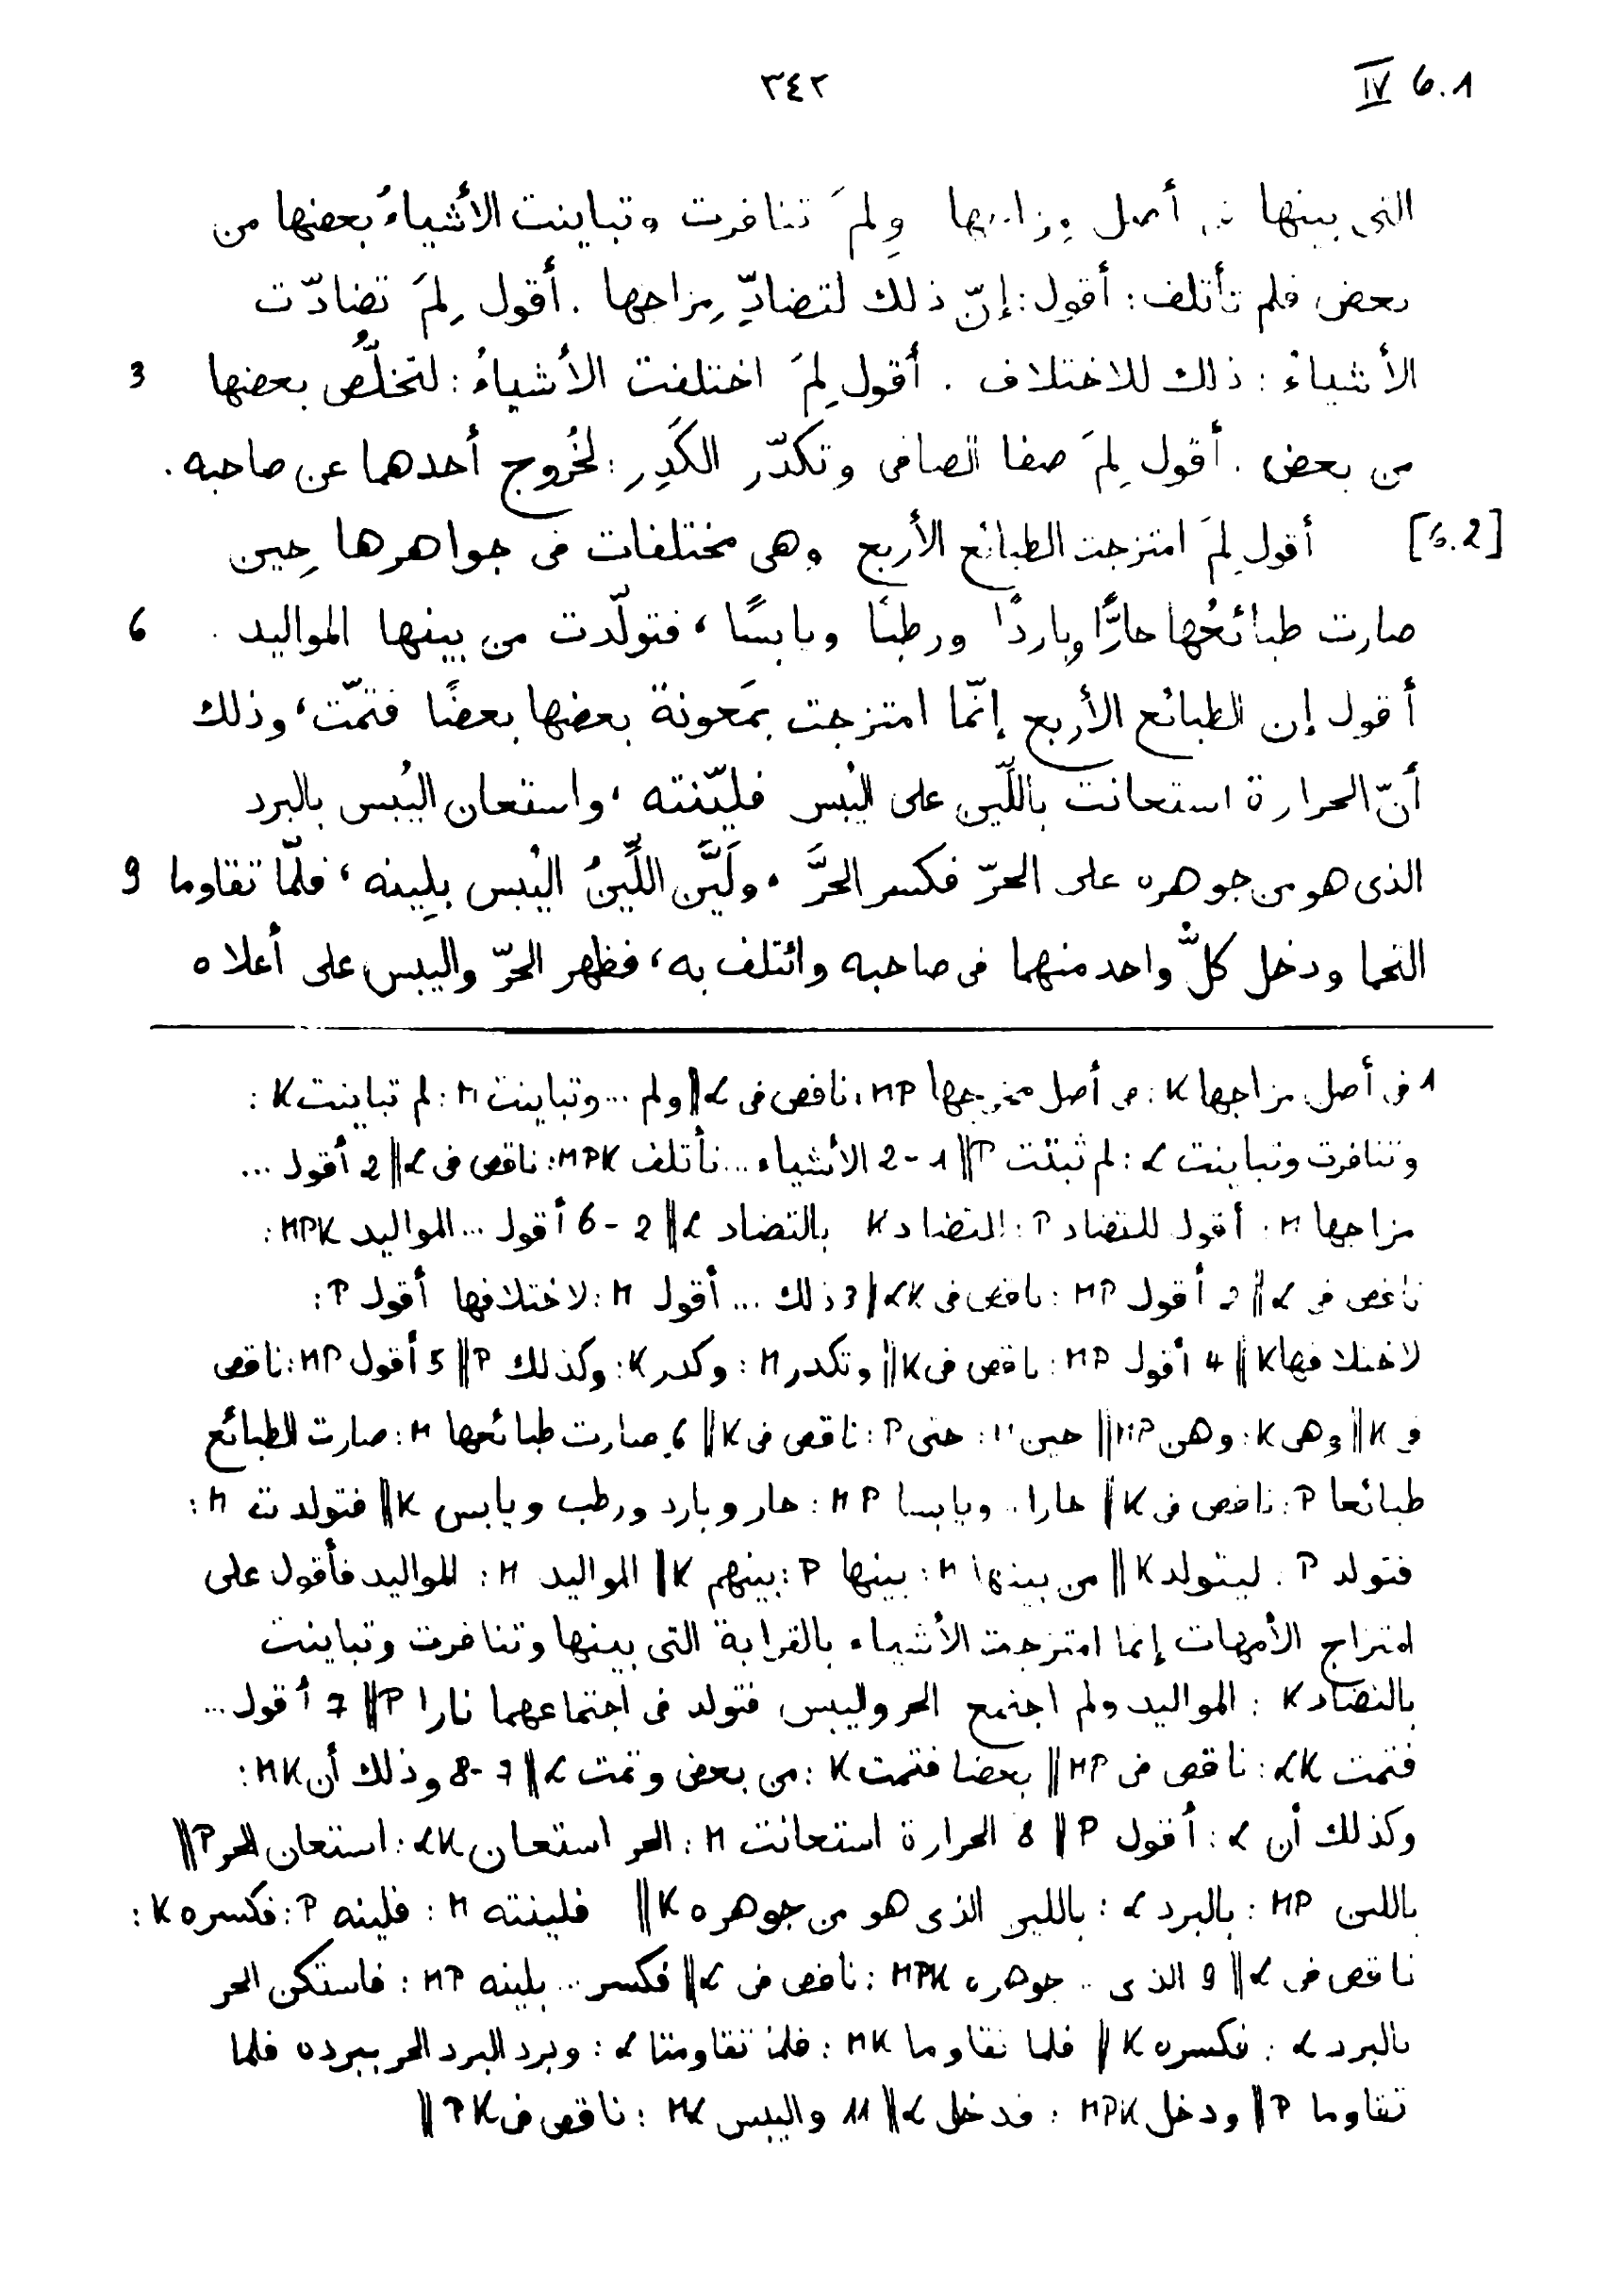 ٣٤٢
IV 6.1
التى بينها فى أصل مزاجها ولِمَ تنافرت وتباينت الأشياءُ بعضها من
بعض فلم تأتلف: أقول: إنّ ذلك لتضادِّ مِزاجها. أقول لِمَ تضادّت
الأشياءُ: ذلك للاختلاف. أقول لِمَ اختلفت الأشياءُ: لتخلُّص بعضها 3
من بعض. أقول لِمَ صفا الصافى وتكدّر الكَدِر: لخُروج أحدهما عن صاحبه.
[6.2] أقول لِمَ امتزجت الطبائع الأربع وهى مختلفات فى جواهرها حِين
صارت طبائعُها حارًّا وباردًا ورطبًا ويابسًا، فتولّدت من بينها المواليد. 6
أقول إن الطبائع الأربع إنّما امتزجت بمَعونة بعضها بعضًا فتمّت، وذلك
أنّ الحرارة استعانت باللّين على اليُبس فليّنته، واستعان اليُبس بالبرد
الذى هو من جوهره على الحرّ فكسر الحرَّ، ولَيَّن اللِّينُ اليُبس بلِينه، فلمّا تقاوما 9
التحما ودخل كلُّ واحد منهما فى صاحبه وائتلف به، فظهر الحرّ واليبس على أعلاه
1 فى أصل مزاجها K: من أصل مخرجها MP: ناقص فى α ‖ ولم ... وتباينت M: لم تباينت K:
وتنافرت وتباينت α: لم ثبتت P ‖ 1-2 الأشياء ... تأتلف MPK: ناقص فى α ‖ 2 أقول ...
مزاجها M: أقول للتضاد P: التضاد K بالتضاد α ‖ 2-6 أقول ... المواليد MPK:
ناقص فى α ‖ 2 أقول MP: ناقص فى αK ‖ 3 ذلك ... أقول M: لاختلافها أقول P:
لاختلافها K ‖ 4 أقول MP: ناقص فى K ‖ وتكدر M: وكدر K: وكذلك P ‖ 5 أقول MP: ناقص
فى K ‖ وهى K: وهن MP ‖ حين M: حتى P: ناقص فى K ‖ 6 صارت طبائعها M: صارت الطبائع
طبائعا P: ناقص فى K ‖ حارا .. ويابسا MP: حار وبارد ورطب ويابس K ‖ فتولدت M:
فتولد P: ليتولد K ‖ من بينها M: بينها P: بينهم K ‖ المواليد M: المواليد فأقول على
امتزاج الأمهات إنما امتزجت الأشياء بالقرابة التى بينها وتنافرت وتباينت
بالتضاد K: المواليد ولم اجتمع الحر واليبس فتولد فى اجتماعهما نارا P ‖ 7 أقول ...
فتمت αK: ناقص فى MP ‖ بعضا فتمت K: من بعض وتمت α ‖ 7-8 وذلك أن MK:
وكذلك أن α: أقول P ‖ 8 الحرارة استعانت M: الحر استعان αK: استعان الحر P ‖
باللين MP: بالبرد α: باللين الذى هو من جوهره K ‖ فلينته M: فلينه P: فكسره K:
ناقص فى α ‖ 9 الذى .. جوهره MPK: ناقص فى α ‖ فكسر .. بلينه MP: فاستكن الحر
بالبرد α: فكسره K ‖ فلما تقاوما MK: فلما تقاومتا α: وبرد البرد الحر ببرده فلما
تقاوما P ‖ ودخل MPK: فدخل α ‖ 11 واليبس Mα: ناقص فى PK ‖